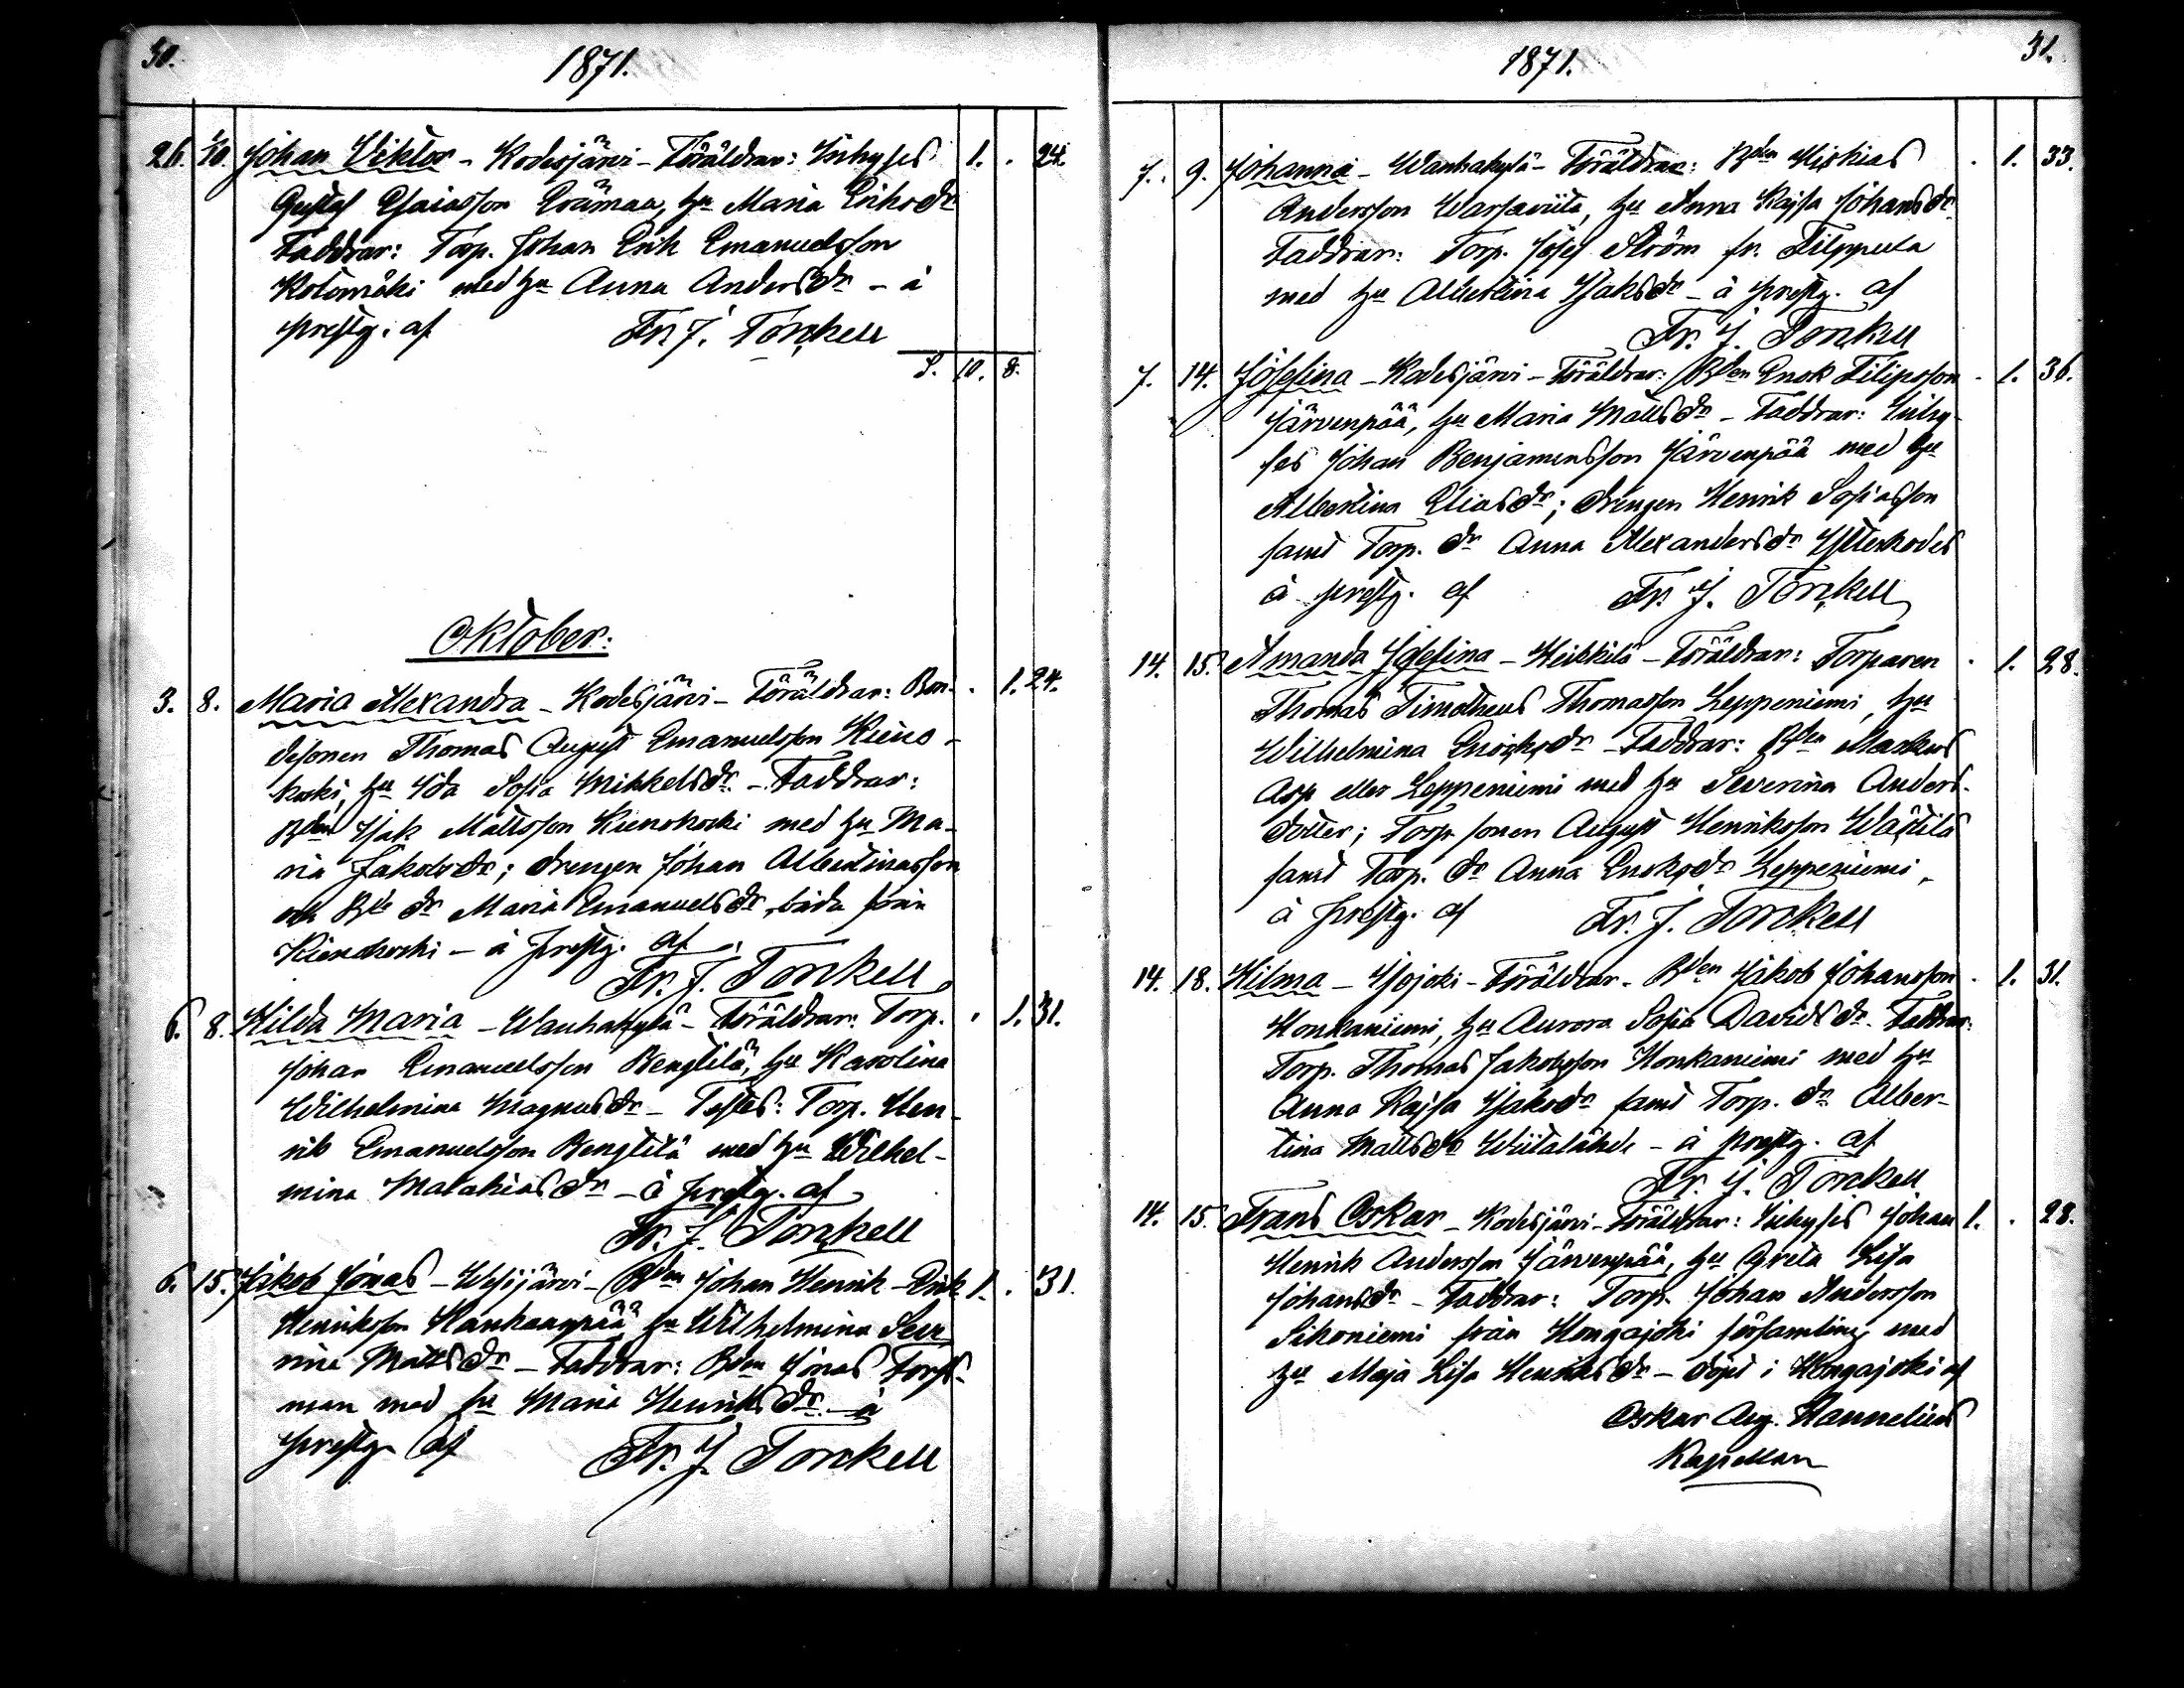 30.
1871.
26. 1/10. Johan Viktor - Kodesjärvi - Föräldrar: Inhyses 1. . 24.
Gustaf Esaiasson Erämaa, hu Maria Eriksdr
Faddrar: Torp. Johan Erik Emanuelsson
Kotomäki med hu Anna Andersdr - å
prestg. af Fr. J. Torckell
S. 10. 8.
Oktober:
3. 8. Maria Alexandra - Kodesjärvi - Föräldrar: Bon- . 1. 24.
desonen Thomas August Emanuelsson Kieno-
koski, hu Ida Sofia Mikkelsdr. - Faddrar:
Bden Isak Mattsson Kienokoski med hu Ma-
ria Jakobsdr; drengen Johan Albertinasson
och Bde dr Maria Emanuelsdr, båda från
Kienokoski - å prestg. af
Fr. J. Torckell
6. 8. Hilda Maria - Wanhakylä - Föräldrar: Torp. . 1. 31.
Johan Emanuelsson Bengtilä, hu Karolina
Wilhelmina Magnusdr - Testes: Torp. Hen-
rik Emanuelsson Bengtilä med hu Wilhel-
mina Malakiasdr - å prestg. af
Fr. J. Torckell
6. 15. Jakob Jonas - Wesijärvi - Bden Johan Henrik - Erik 1. . 31.
Henriksson Kankaanpää hu Wilhelmina Seve
rina Mattsdr - Faddrar: Bden Jonas Fors-
man med hu Maria Henriksdr. - å
prestg. af Fr. J. Torckell
1871.
31.
7. 9. Johanna - Wanhakylä - Föräldrar: Bden Hiskias . 1. 33.
Andersson Warsaviita, hu Anna Kajsa Johansdr
Faddrar: Torp. Josef Ström fr. Filppula
med hu Albertina Isaksdr - å prestg. af
Fr. J. Torckell
7. 14. Josefina - Kodesjärvi - Föräldrar: Bden Enok Filipsson . 1. 36.
Järvenpää, hu Maria Mattsdr - Faddrar: Inhy-
ses Johan Benjaminsson Järvenpää med hu
Albertina Eliasdr; drengen Henrik Sofiasson
samt Torp. dr Anna Alexandersdr Ytterkodes
å prestg. af Fr. J. Torckell
14. 15. Amanda Josefina - Heikkilä - Föräldrar: Torparen . 1. 28.
Thomas Timotheus Thomasson Leppeniemi, hu
Wilhelmina Enoksdr - Faddrar: Bden Markus
Asp eller Leppeniemi med hu Severina Anders-
dotter; Torp. sonen August Henriksson Wästilä
samt Torp. dr Anna Enoksdr Leppeniemi,
å prestg. af Fr. J. Torckell
14. 18. Hilma - Isojoki - Föräldrar - Bden Jakob Johansson . 1. 31.
Honkaniemi, hu Aurora Sofia Davidsdr. Faddrar:
Torp. Thomas Jakobsson Honkaniemi med hu
Anna Kajsa Isaksdr samt Torp. dr Alber-
tina Mattsdr Wiitalähde - å prestg. af
Fr. J. Torckell
14. 15. Frans Oskar - Kodesjärvi - Föräldrar: Inhyses Johan 1. . 28.
Henrik Andersson Järvenpää, hu Greta Lisa
Johansdr - Faddrar: Torp. Johan Andersson
Sikoniemi från Hongajoki församling med
hu Maja Lisa Henriksdr - döpt i Hongajoki af
Oskar Aug. Hannelius
Kapellan